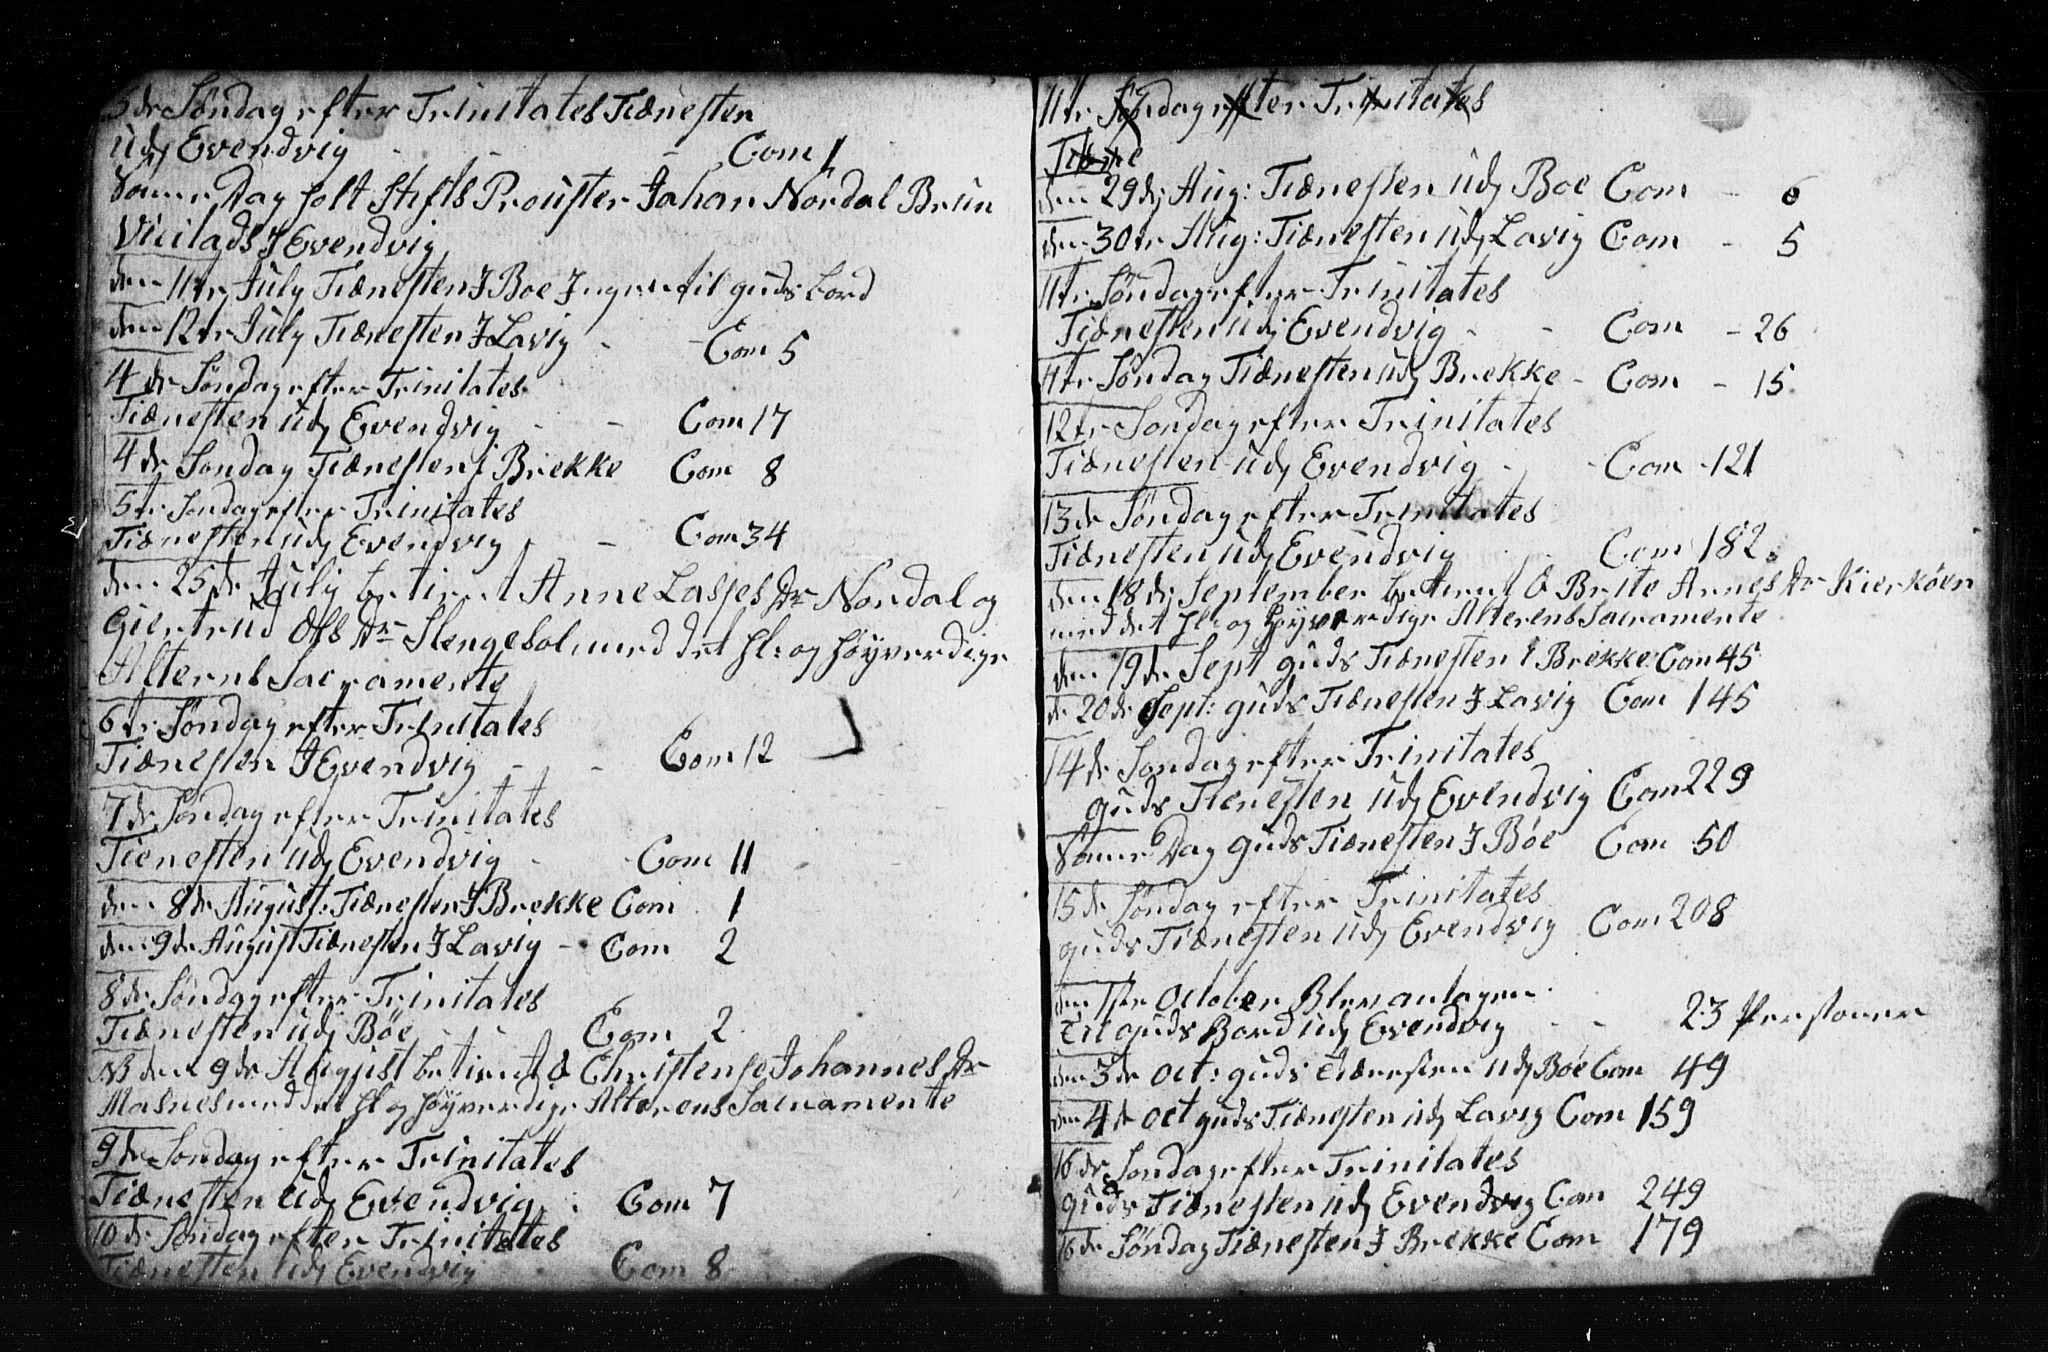 3de Søndag efter Trinitates Tiænesten
udj Evendvig - - - Com 1
Same Dag holt Stifts Prouster Johan Nordal Brun
Visitads J Evendvig
den 11te July Tiænesten J Boe Jngen til guds Bord
den 12te July Tiænesten J Lavig - Com 5
4de Søndag efter Trinitates
Tiænesten udj Evendvig - - Com 17
4de Søndag Tiænesten J Brekke Com 8
5te Søndag efter Trinitates
Tiænesten udj Evendvig - - Com 34
den 25de July betient Anne Lasses Dr Nordal og
Giertrud Ols Dr Slengesol med det hl: og høyverdige
Alterns Sacramente
6te Søndag efter Trinitates
Tiænesten J Evendvig - - Com 12
7de Søndag efter Trinitates
Tienesten udj Evendvig - - Com 11
den 8de August: Tiænesten J Brekke Com 1
den 9de August Tiænesten J Lavig - Com 2
8de Søndag efter Trinitates
Tiænesten udj Bøe - Com 2
NB den 9de August betient Christense Johannes Dr
Masnes med det hl og høyverdige Alterens Sacramente
9de Søndag efter Trinitates
Tiænesten udj Evendvig - Com 7
10de Søndag efter Trinitates
Tiænesten udj Evendvig Com 8
11te Søndag efter Trinitates
Tiæne
den 29de Aug: Tiænesten udj Boe Com - 6
den 30te Aug: Tiænesten udj Lavig Com - 5
11te Søndag efter Trinitates
Tiænesten udj Evendvig - - Com - 26
11te Søndag Tiænesten udj Brekke - Com - 15
12te Søndag efter Trinitates
Tiænesten udj Evendvig - - Com - 121
13de Søndag efter Trinitates
Tiænesten udj Evendvig - Com 182
den 18de September betient Brite Arnes Dr Kierkøen
med det hl: og høyverdige Alterens Sacramente
den 19de Sept guds Tiænesten i Brekke: Com 45
de 20de Sept: guds Tiænesten J Lavig Com 145
14de Søndag efter Trinitates
guds Tienesten udj Evendvig Com 229
Same Dag guds Tiænesten J Bøe Com 50
15de Søndag efter Trinitates
guds Tiænesten udj Evendvig Com 208
den 1ste October Blev antagen
til guds Bord udj Evendvig - - 23 Personer
den 3de oct: guds tiænesten udj Bøe Com 49
den 4de oct guds Tiænesten udj Lavig Com 159
16de Søndag efter Trinitates
guds Tiænesten udj Evendvig Com 249
16de Søndag Tiænesten J Brekke Com 179